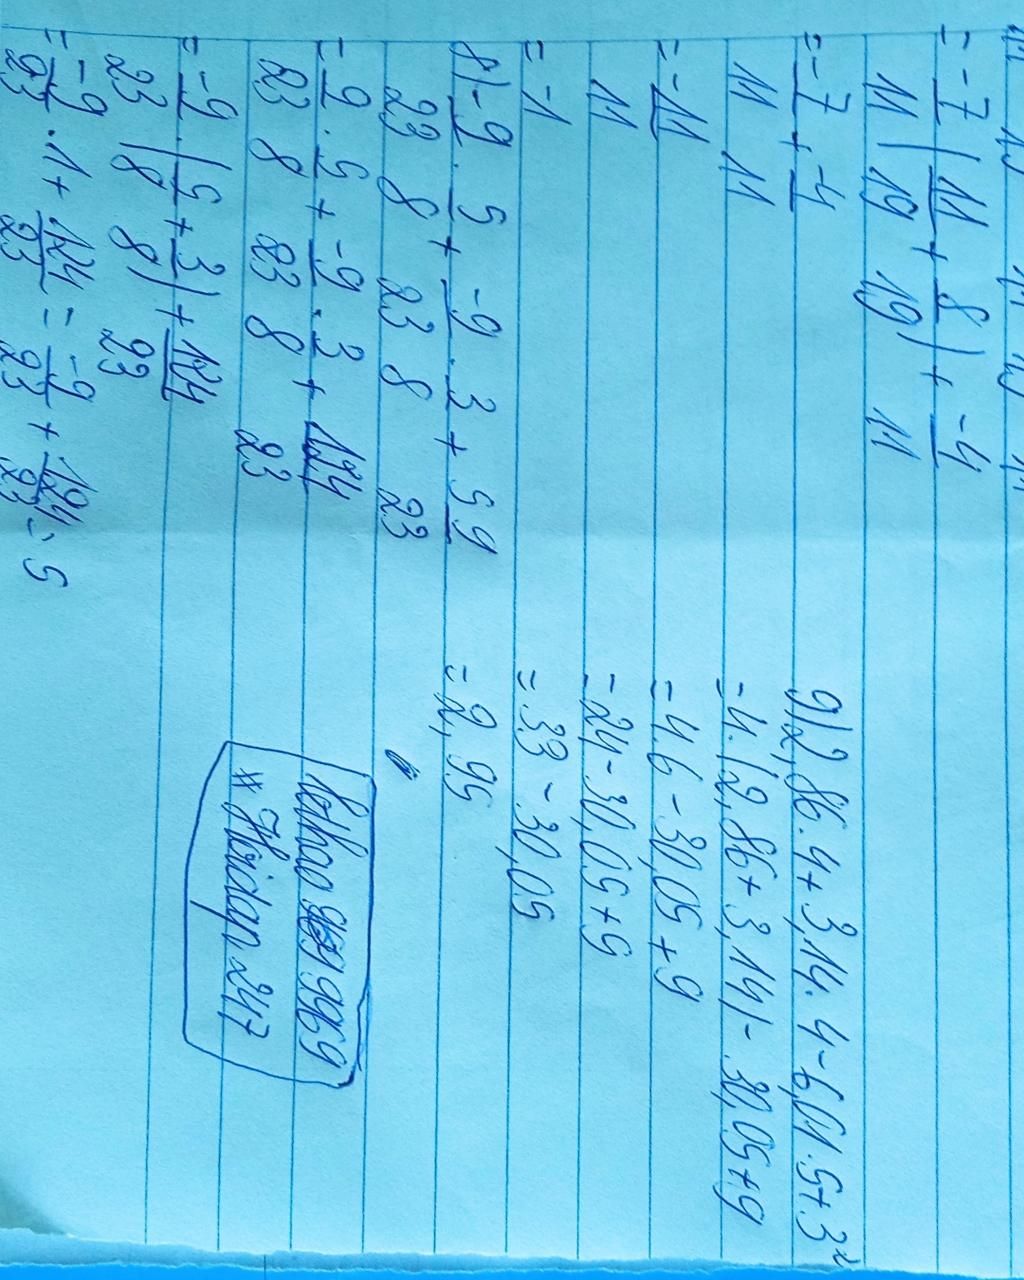 = -7/11 (11/19 + 8/19) + -4/11
= -7/11 + -4/11
= -11/11
= -1
8) -9/23 . 5/8 + -9/23 . 3/8 + 5 9/23
= -9/23 . 5/8 + -9/23 . 3/8 + 124/23
= -9/23 . (5/8 + 3/8) + 124/23
= -9/23 . 1 + 124/23 = -9/23 + 124/23 = 5
9) 2,86.4 + 3,14.4 - 6,01.5 + 3²
= 4.(2,86 + 3,14) - 30,05 + 9
= 4.6 - 30,05 + 9
= 24 - 30,05 + 9
= 33 - 30,05
= 2,95
# Hoidap247